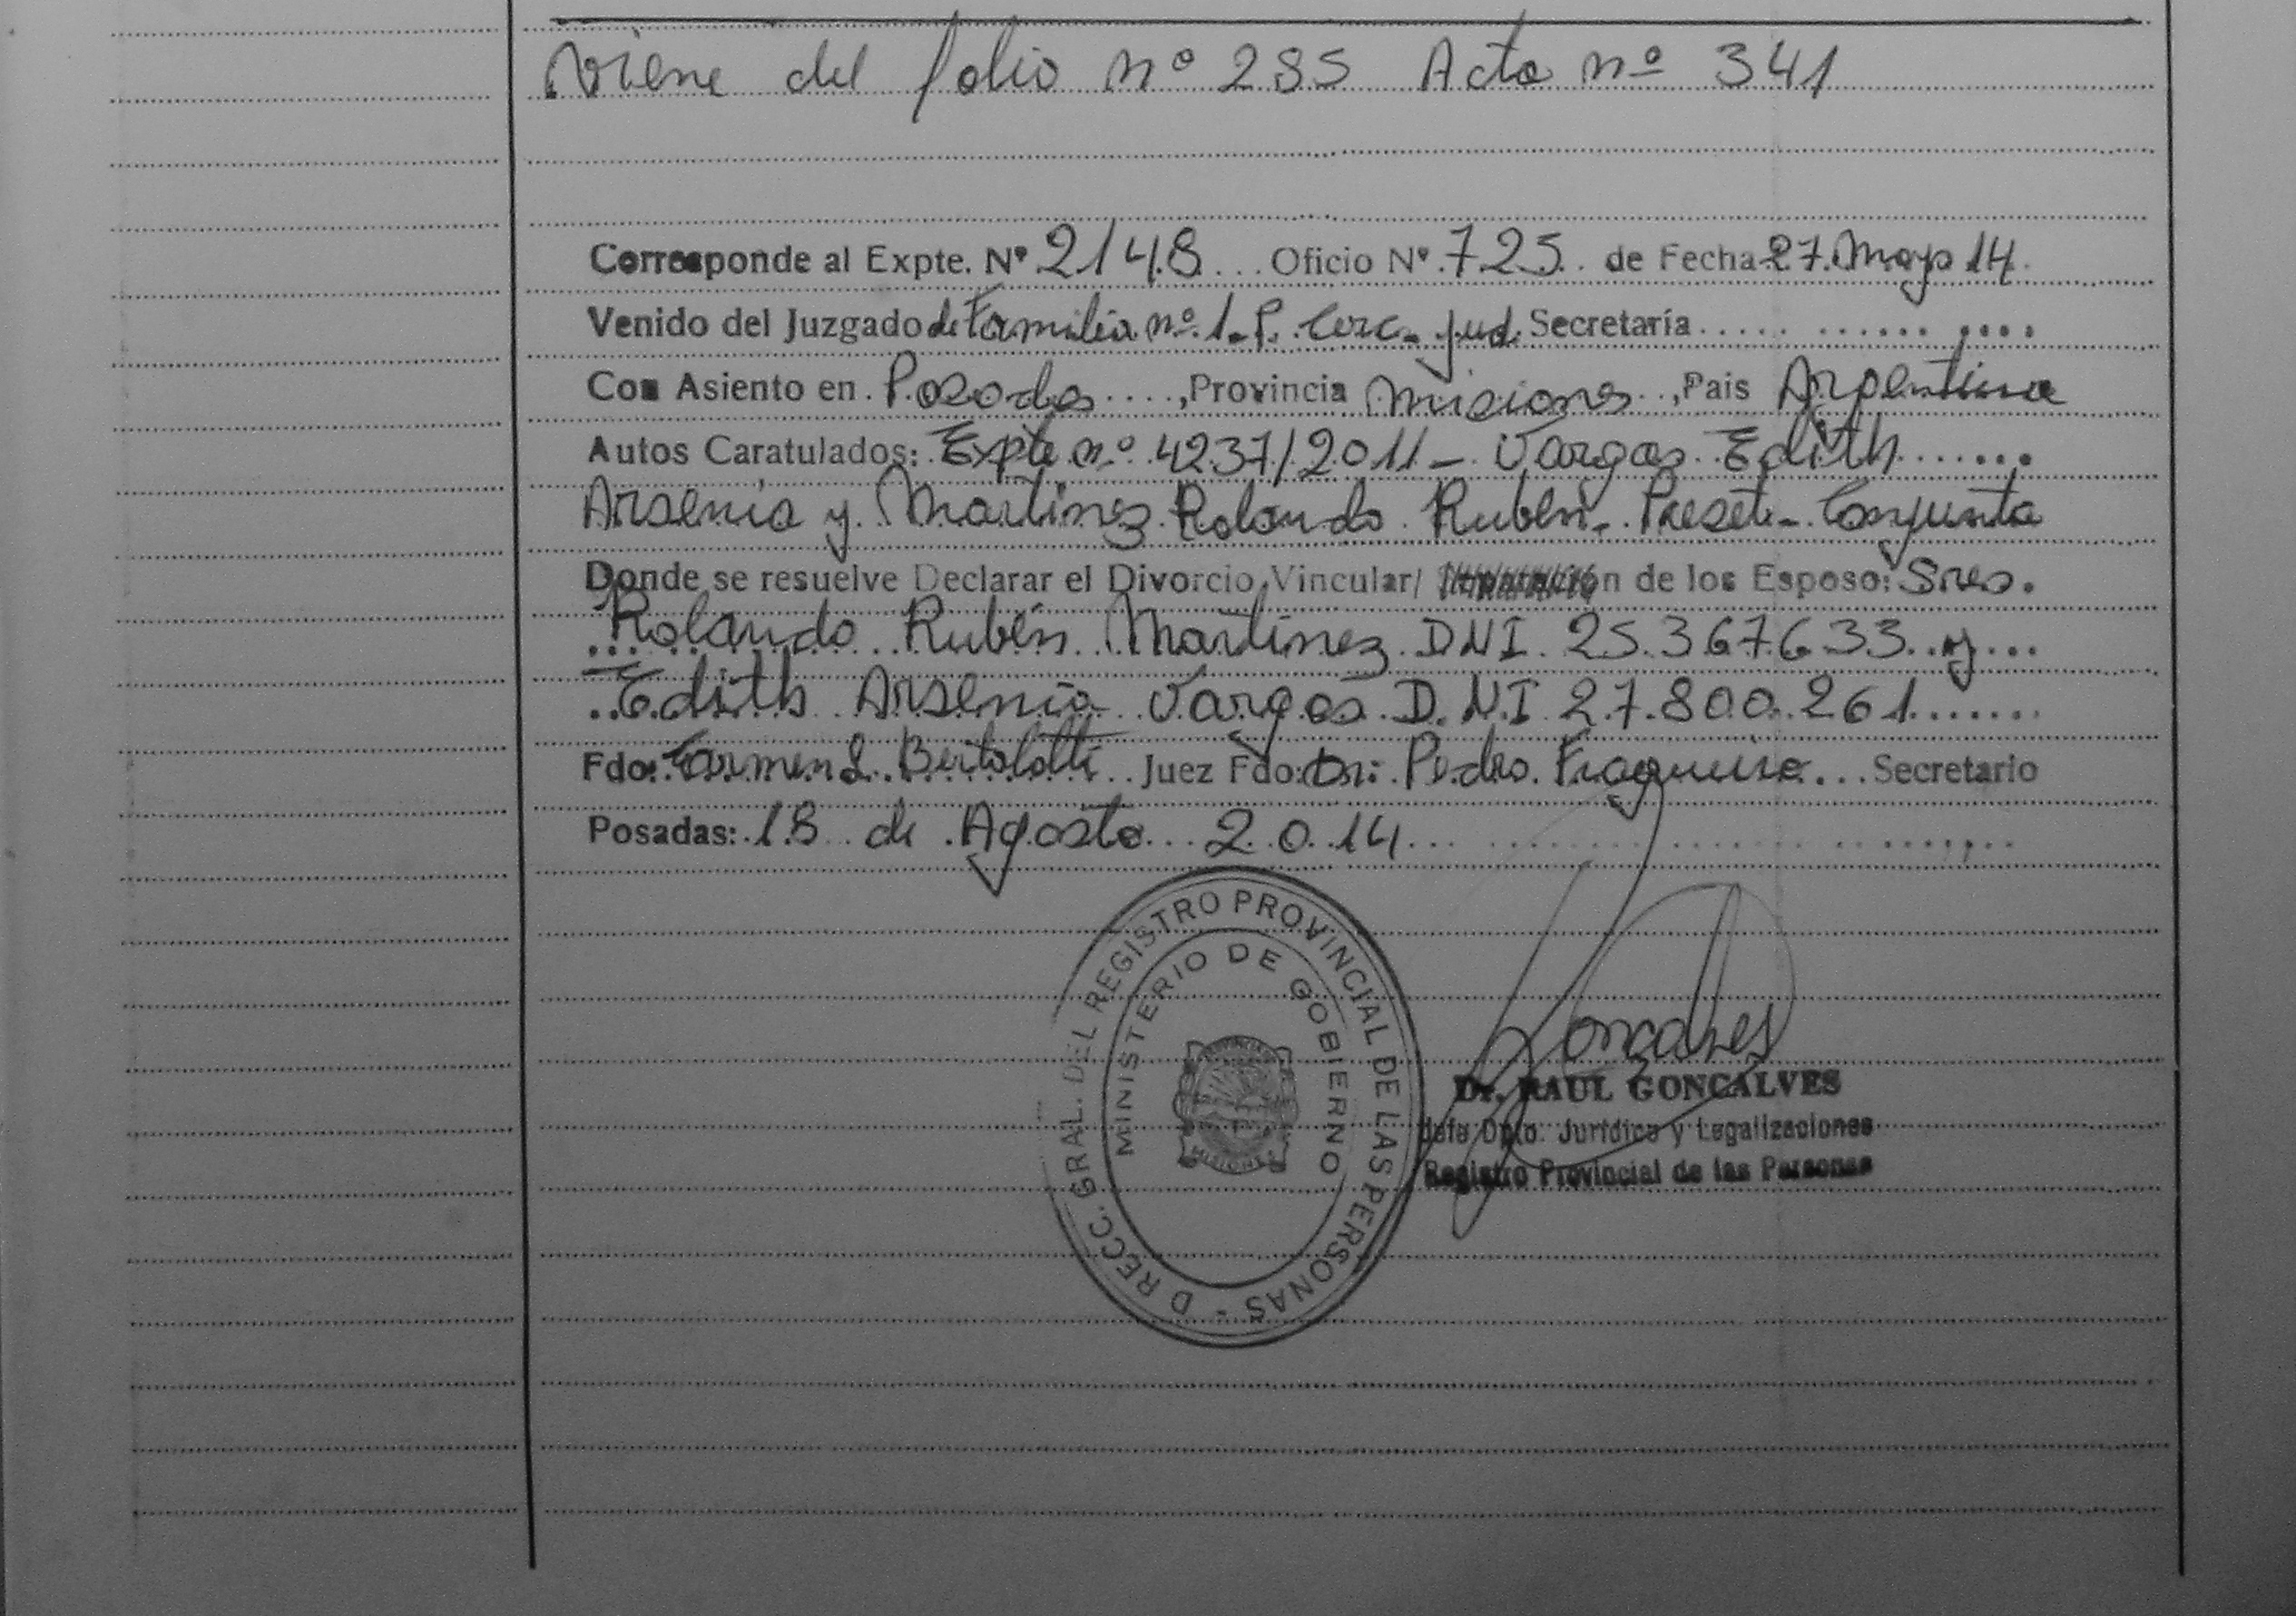 Viene del folio nº 285 Acta nº 341
Corresponde al Expte. Nº 2148 Oficio Nº 725 de Fecha 27 Mayo 14
Venido del Juzgado de Familia nº 1 - P. Circ. Jud. Secretaría
Con Asiento en Posadas, Provincia Misiones, País Argentina
Autos Caratulados: Expte nº 4237/2011 - Vargas Edith
Arsenia y Martinez Rolando Rubén - Preset - Conjunta
Donde se resuelve Declarar el Divorcio Vincular/ de los Esposo: Sres.
Rolando Rubén Martinez DNI 25.367.633 y
Edith Arsenia Vargas D.N.I 27.800.261
Fdo: Carmen L. Bertolotti Juez Fdo: Dr: Pedro Secretario
Posadas: 18 de Agosto 2014
D RECC. GRAL. DEL REGISTRO PROVINCIAL DE LAS PERSONAS -
MINISTERIO DE GOBIERNO
MISIONES
Goncalves
Dr. RAUL GONCALVES
Jefe Dpto. Jurídico y Legalizaciones
Registro Provincial de las Personas